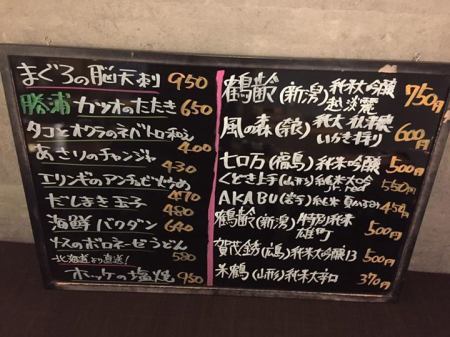 まぐろの脳天刺 950
勝浦 カツオのたたき 650
タコとオクラのネバトロ和え 400
あさりのチャンジャ 430
エリンギのアンチョビ炒め 470
だしまき玉子 480
海鮮バクダン 640
ソースのボロネーゼうどん 580
北海道より直送!
ホッケの塩焼 950
鶴齢(新潟)純米大吟醸 越淡麗 750円
風の森(奈良)純大 秋津穂 いかき採り 600円
七ロ万(福島)純米吟醸 500円
くどき上手(山形)純米大吟 Jr. red 550円
AKABU(岩手)純米 夏かすみ 450円
鶴齢(新潟)特別純米 雄町 500円
賀茂金秀(広島)純米大吟醸13 500円
米鶴(山形)純米大辛口 370円